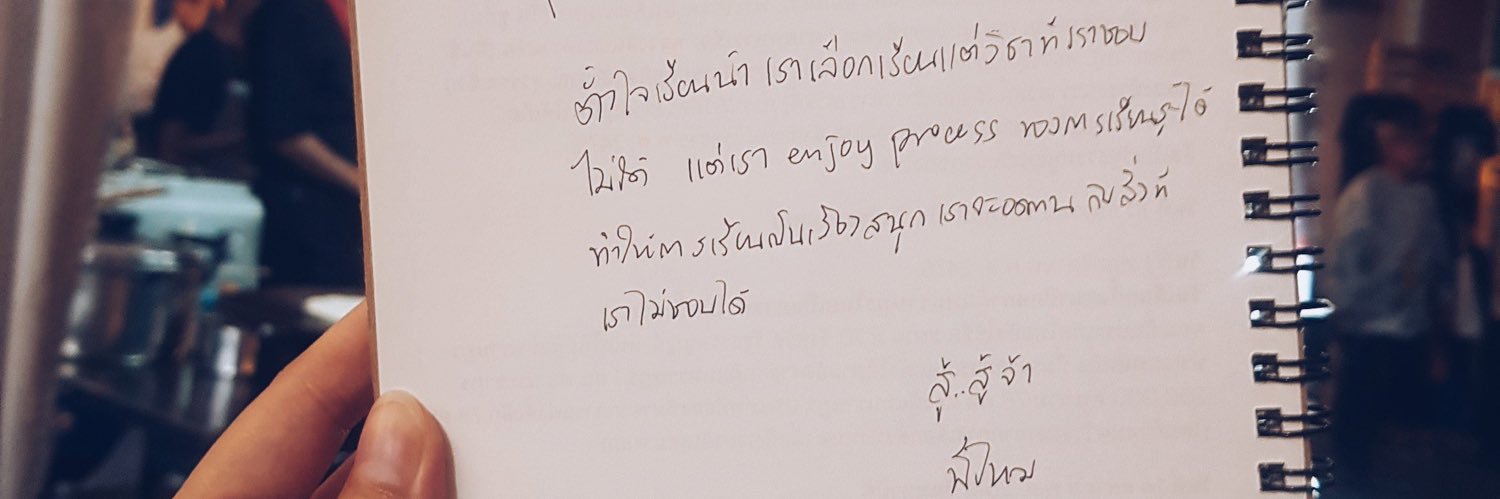 ตั้งใจเรียนน้า เราเลือกเรียนแต่วิชาที่เราชอบ
ไม่ได้ แต่เรา enjoy process ของการเรียนรู้ได้
ทำให้การเรียนเป็นเรื่องสนุก เราจะอดทน กับสิ่งที่
เราไม่ชอบได้
สู้..สู้ จ้า
พี่ไหม